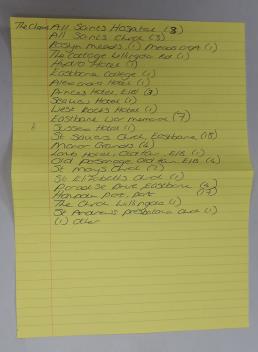 The Claim All Saints Hospital (3)
All Saints Church (3)
Roslyn Meads (1)
The Cottage Willingdon Rd (1)
Hydro Hotel (1)
Eastbourne College (1)
Alexandra Hotel (1)
Princes Hotel, E/B (3)
Hotel (1)
West Rocks Hotel (1)
Eastbourne War memorial (7)
Sussex Hotel (1)
St Saviours Church, Eastbourne (15)
Manor Grounds (4)
Lamb Hotel, Old Town, E/B (1)
Old Parsonage, Old Town E/B (4)
St Marys Church
St Elizabeths Church (1)
Drive Eastbourne
(17)
The Church Willingdon (1)
St Andrews Church (1)
(1) Other